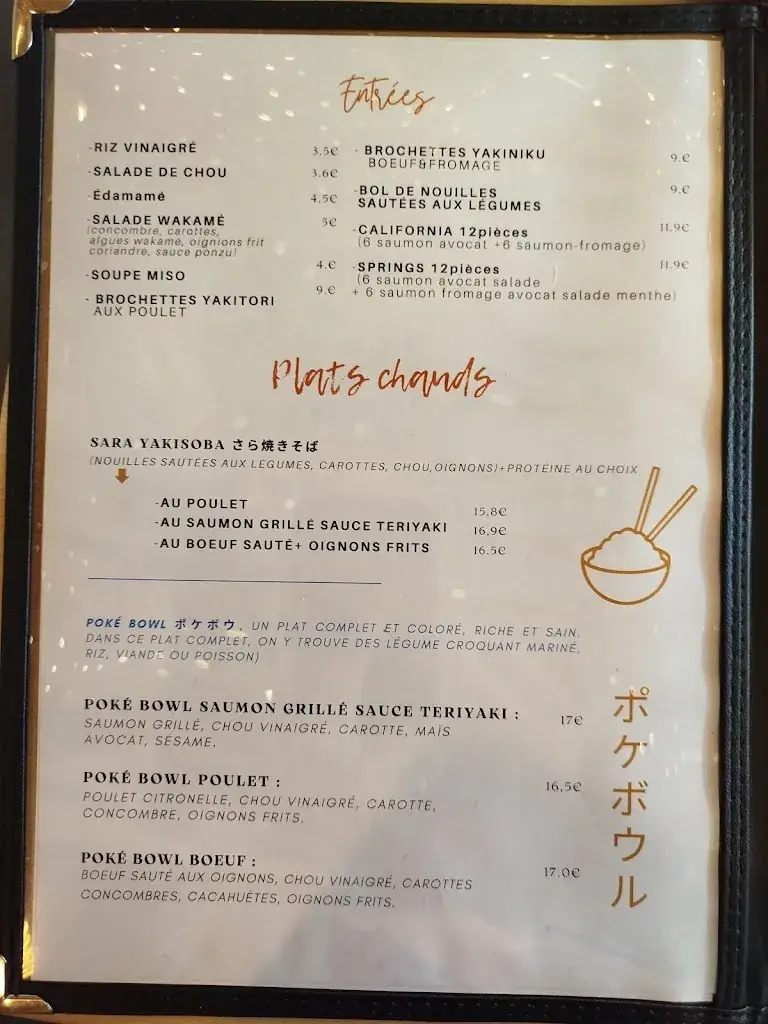 Entrées
-RIZ VINAIGRÉ 3.5€
-SALADE DE CHOU 3.6€
-Édamamé 4,5€
-SALADE WAKAMÉ 5€
(concombre, carottes,
algues wakame, oignions frit
coriandre, sauce ponzu)
-SOUPE MISO 4.€
- BROCHETTES YAKITORI 9.€
AUX POULET
- BROCHETTES YAKINIKU 9.€
BOEUF&FROMAGE
-BOL DE NOUILLES 9.€
SAUTÉES AUX LÉGUMES
-CALIFORNIA 12pièces 11.9€
(6 saumon avocat +6 saumon-fromage)
-SPRINGS 12pièces 11.9€
(6 saumon avocat salade
+ 6 saumon fromage avocat salade menthe)
Plats chauds
SARA YAKISOBA さら焼きそば
(NOUILLES SAUTÉES AUX LÉGUMES, CAROTTES, CHOU,OIGNONS)+PROTÉINE AU CHOIX
-AU POULET 15,8€
-AU SAUMON GRILLÉ SAUCE TERIYAKI 16,9€
-AU BOEUF SAUTÉ+ OIGNONS FRITS 16.5€
POKÉ BOWL ポケボウ, UN PLAT COMPLET ET COLORÉ, RICHE ET SAIN.
DANS CE PLAT COMPLET, ON Y TROUVE DES LÉGUME CROQUANT MARINÉ,
RIZ, VIANDE OU POISSON)
POKÉ BOWL SAUMON GRILLÉ SAUCE TERIYAKI : 17€
SAUMON GRILLÉ, CHOU VINAIGRÉ, CAROTTE, MAÏS
AVOCAT, SÉSAME.
POKÉ BOWL POULET : 16,5€
POULET CITRONELLE, CHOU VINAIGRÉ, CAROTTE,
CONCOMBRE, OIGNONS FRITS.
POKÉ BOWL BOEUF : 17.0€
BOEUF SAUTÉ AUX OIGNONS, CHOU VINAIGRÉ, CAROTTES
CONCOMBRES, CACAHUÈTES, OIGNONS FRITS.
ポケボウル